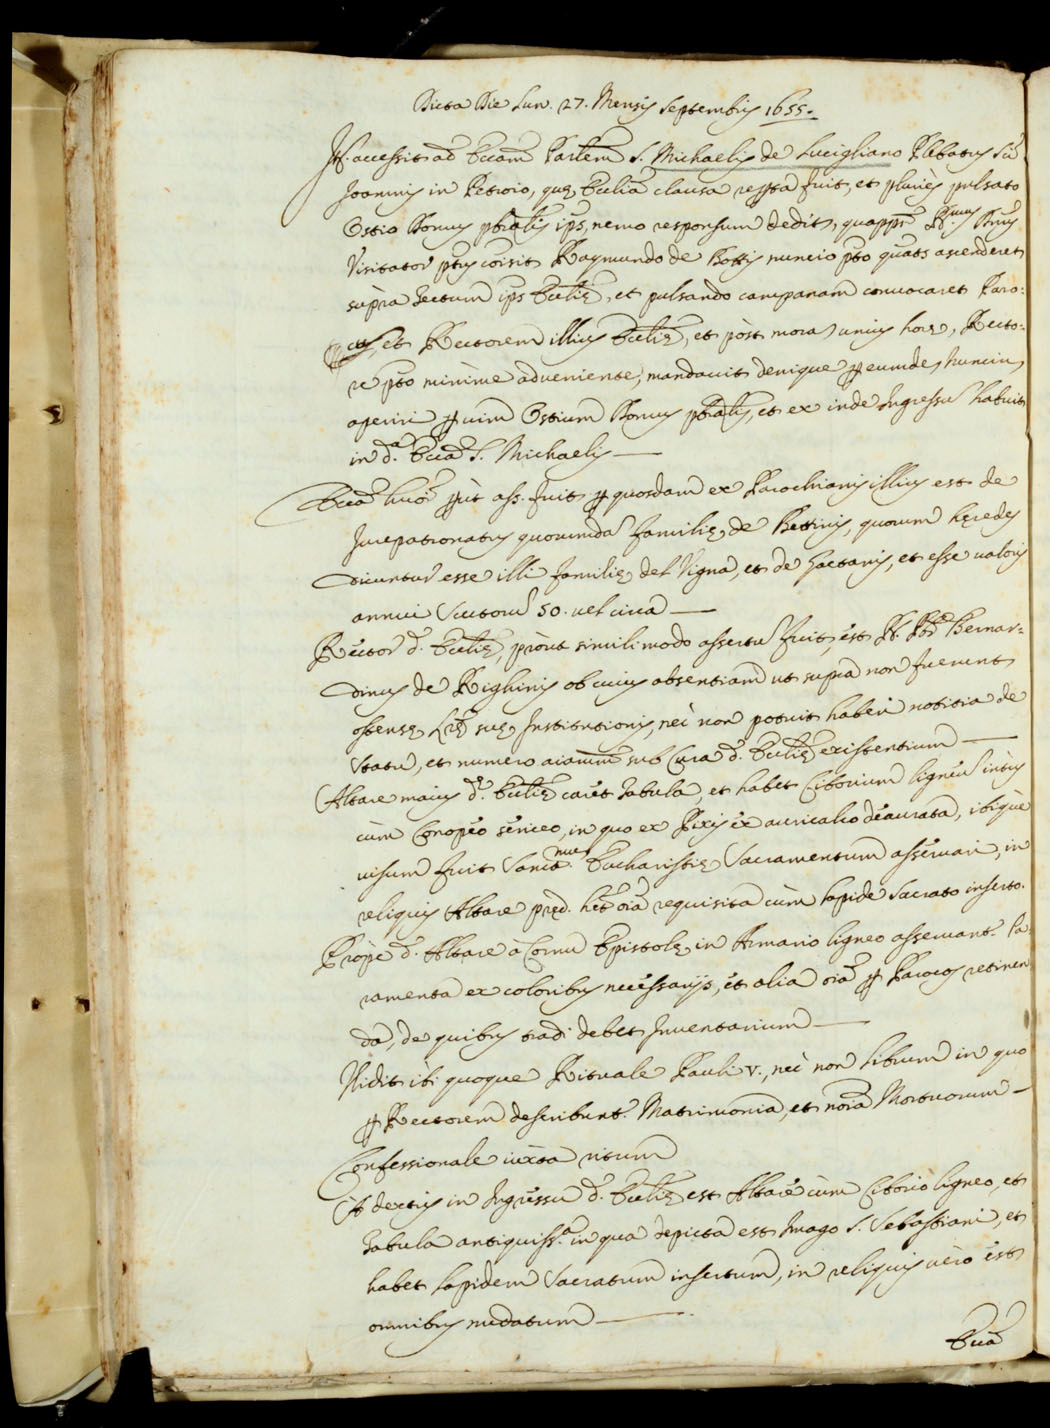 Dicta Die Lun. 27. Mensis Septembris 1655.
It. accessit ad Eccam Parlem S. Michaelis de Lucigliano Plebatus Sci
Joannis in Petroio, quę Ecclia clausa repta fuit, et pluriès pulsato
Ostio Domus pbralis ips, nemo responsum dedit, quappr Rmus Dnus
Visitator ptus coisit Raymundo de nuncio pto quats ascenderet
supra tectum ips Ecclię, et pulsando campanam convocaret Paro:
cus, et Rectorem illius Ecclię, et pòst mora unius horę, Recto:
re pto minimè adveniente, mandavit denique p eumdẽ Nuncium
aperiri p vim Ostium Domus pbralis, et ex inde Ingressũ habuit
in d.a Ecca S. Michaelis
Ecca huoi put ass. fuit p quosdam ex Parochianis illius est de
Jurepatronatus quorumdã familię de Bettinis, quorum hęredes
dicuntur esse illi familię del Vigna, et de Gaetanis, et esse valoris
annui Scutorũ 50. vel circa
Rector d. Ecclię, pròut simili modo assertũ fuit, est R. Pbr Bernar=
dinus de Righinis ob cuius absentiam ut supra non fuerunt
ostensę Lrę suę Institutionis, nec non potuit haberi notitia de
Statu, et numero aiarum sub Cura d. Ecclię existentium
Altare maius d.ę Ecclię caret Tabula, et habet Ciborium ligneũ intùs
cùm Conopeo sericeo, in quo ex Pixis ex auricalco deaurata, ibique
visum fuit Sanctmum Eucharistię Sacramentum asservari, in
reliquis Altare pręd. het oia requisita cùm lapide Sacrato inserto.
Propè d. Altare à Cornu Epistolę in Armario ligneo asservant. Pa
ramenta ex coloribus necessarijs, et alia oia p Parocos retinen
da, de quibus tradi debet Inventarium
Vidit ibi quoque Rituale Pauli V., nec non Librum in quo
p Rectorem describunt. Matrimonia, et noia Mortuorum
Confessionale iuxta ritum
A dextris in Ingressu d. Ecclię est Altare cùm Ciborio ligneo, et
Tabula antiquiss.a in qua depicta est Imago S. Sebastiani, et
habet lapidem Sacratum insertum, in reliquis verò est
omnibus nudatum
Ecca